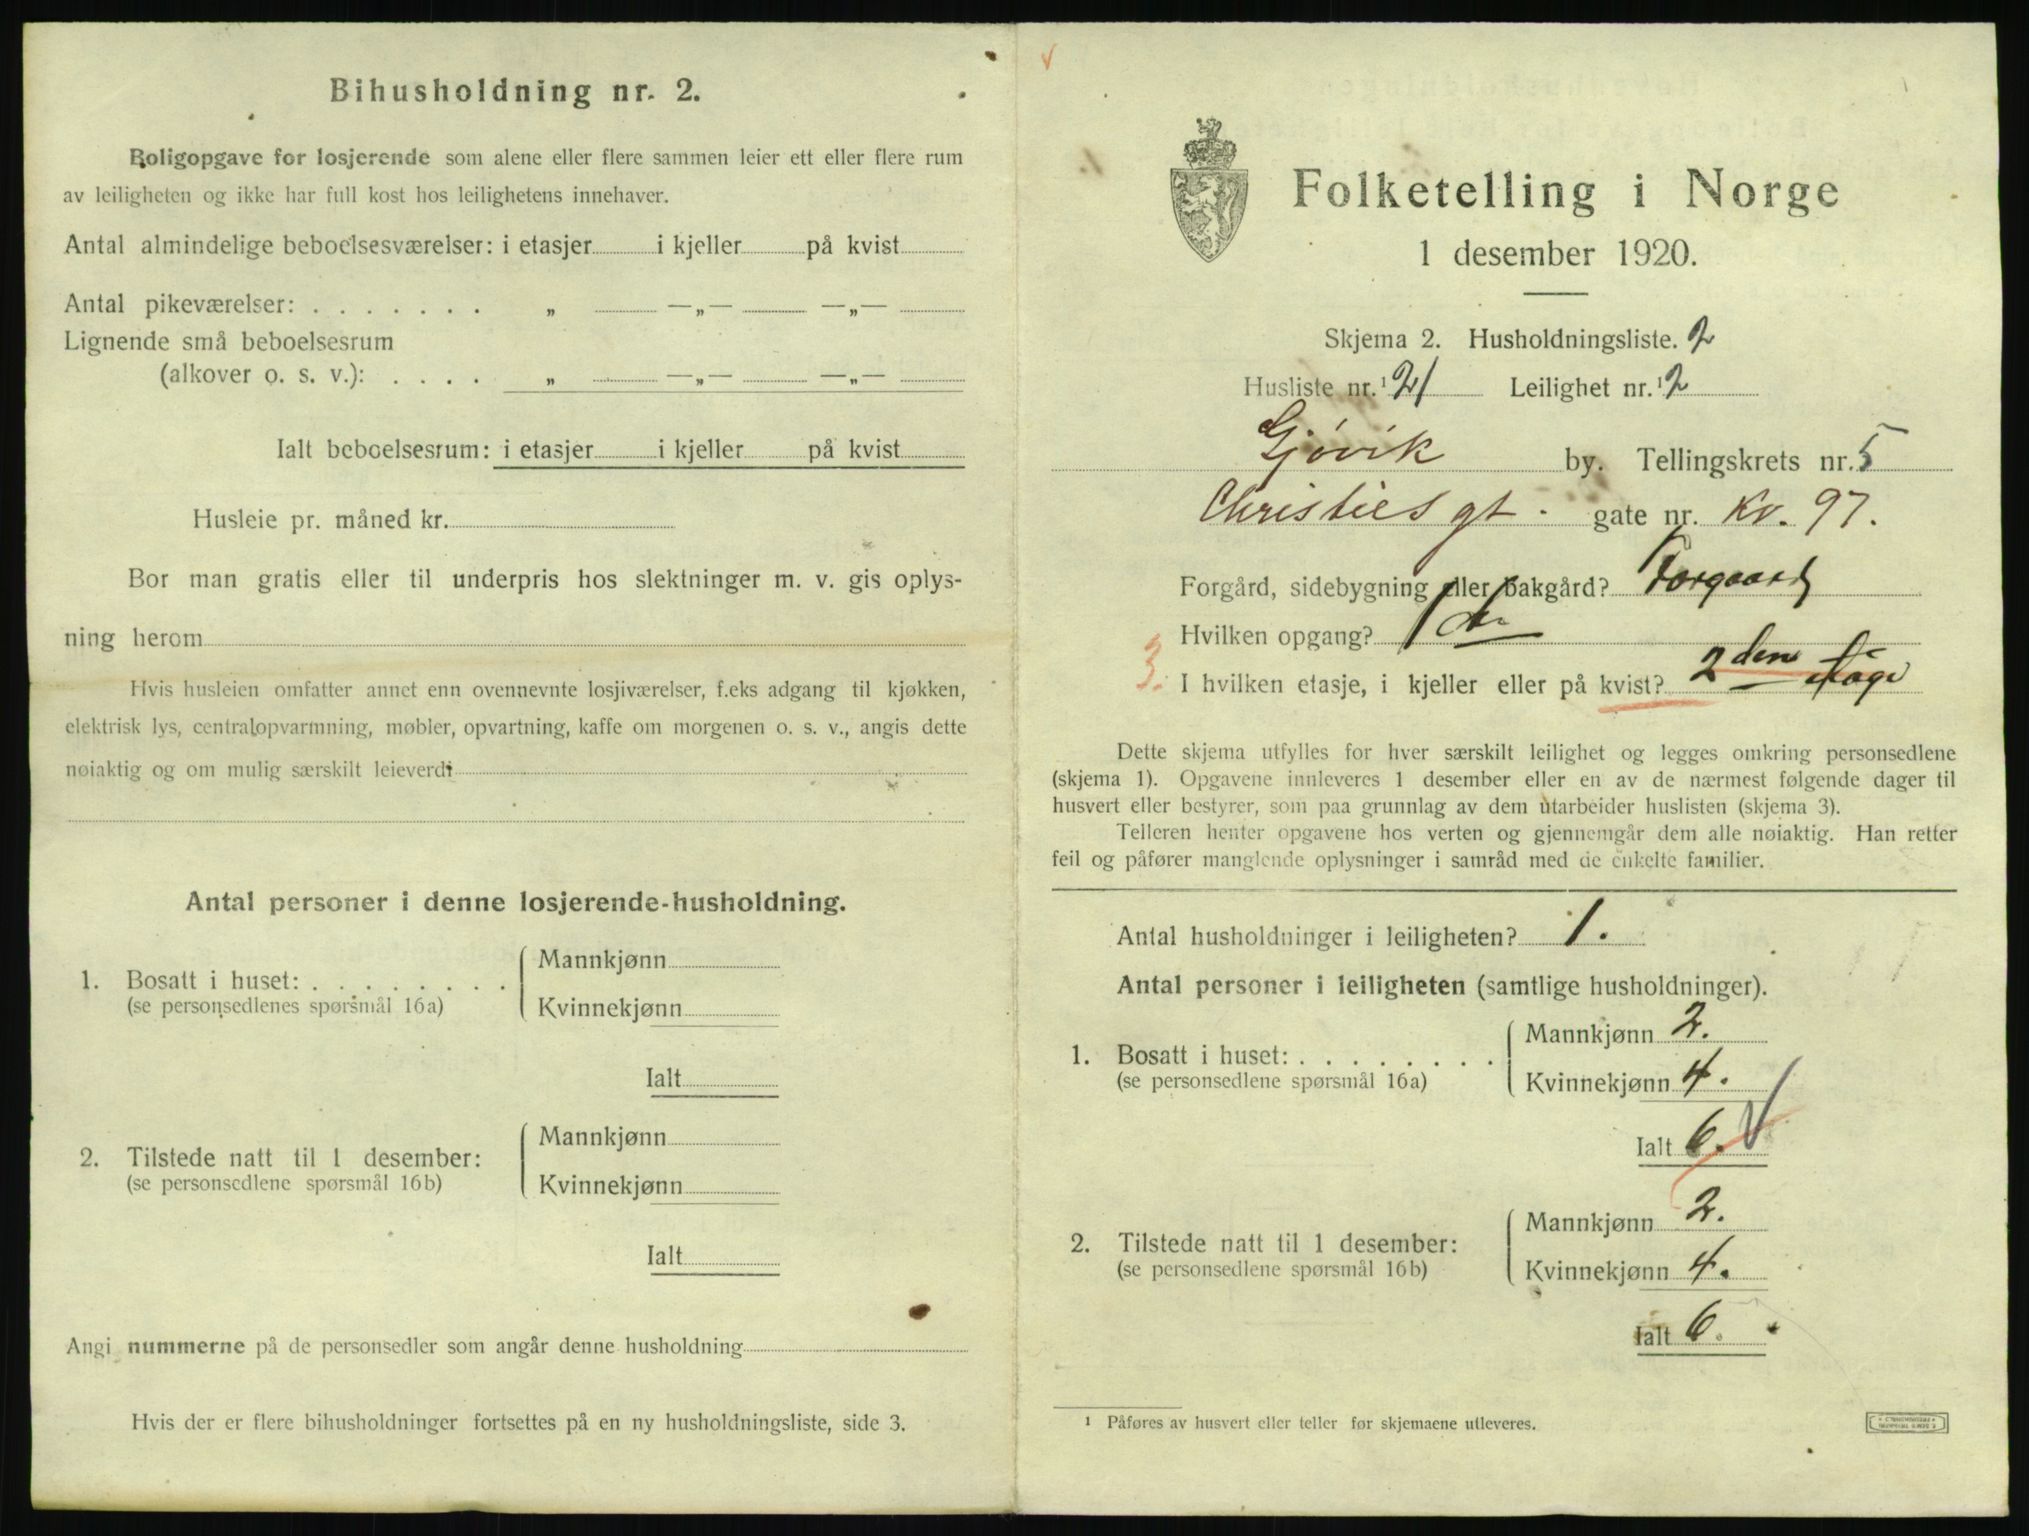 Bihusholdning nr. 2.
Boligopgave for losjerende som alene eller flere sammen leier ett eller flere rum
av leiligheten og ikke har full kost hos leilighetens innehaver.
Antal almindelige beboelsesværelser: i etasjer i kjeller på kvist
Antal pikeværelser: . . . . . . . „ —„— —„—
Lignende små beboelsesrum
(alkover o. s. v.): . . . . „ —„— —„—
Ialt beboelsesrum: i etasjer i kjeller på kvist
Husleie pr. måned kr.
Bor man gratis eller til underpris hos slektninger m. v. gis oplys-
ning herom
Hvis husleien omfatter annet enn ovennevnte losjiværelser, f.eks adgang til kjøkken,
elektrisk lys, centralopvarmning, møbler, opvartning, kaffe om morgenen o. s. v., angis dette
nøiaktig og om mulig særskilt leieverdi
Antal personer i denne losjerende-husholdning.
1. Bosatt i huset: . . . . . . . . Mannkjønn
(se personsedlenes spørsmål 16a) Kvinnekjønn
Ialt
2. Tilstede natt til 1 desember: Mannkjønn
(se personsedlene spørsmål 16b) Kvinnekjønn
Ialt
Angi nummerne på de personsedler som angår denne husholdning
Hvis der er flere bihusholdninger fortsettes på en ny husholdningsliste, side 3.
Folketelling i Norge
1 desember 1920.
Skjema 2. Husholdningsliste. 2
Husliste nr.¹ 21 Leilighet nr.¹ 2
Gjøvik by. Tellingskrets nr. 5
Christies gt. gate nr. Kv. 97.
Forgård, sidebygning eller bakgård? Forgaard
Hvilken opgang?
3. I hvilken etasje, i kjeller eller på kvist? 2den
Dette skjema utfylles for hver særskilt leilighet og legges omkring personsedlene
(skjema 1). Opgavene innleveres 1 desember eller en av de nærmest følgende dager til
husvert eller bestyrer, som paa grunnlag av dem utarbeider huslisten (skjema 3).
Telleren henter opgavene hos verten og gjennemgår dem alle nøiaktig. Han retter
feil og påfører manglende oplysninger i samråd med de enkelte familier.
Antal husholdninger i leiligheten? 1.
Antal personer i leiligheten (samtlige husholdninger).
1. Bosatt i huset: . . . . . . . . Mannkjønn 2.
(se personsedlene spørsmål 16a) Kvinnekjønn 4.
Ialt 6.
2. Tilstede natt til 1 desember: Mannkjønn 2.
(se personsedlene spørsmål 16b) Kvinnekjønn 4.
Ialt 6.
¹ Påføres av husvert eller teller før skjemaene utleveres.